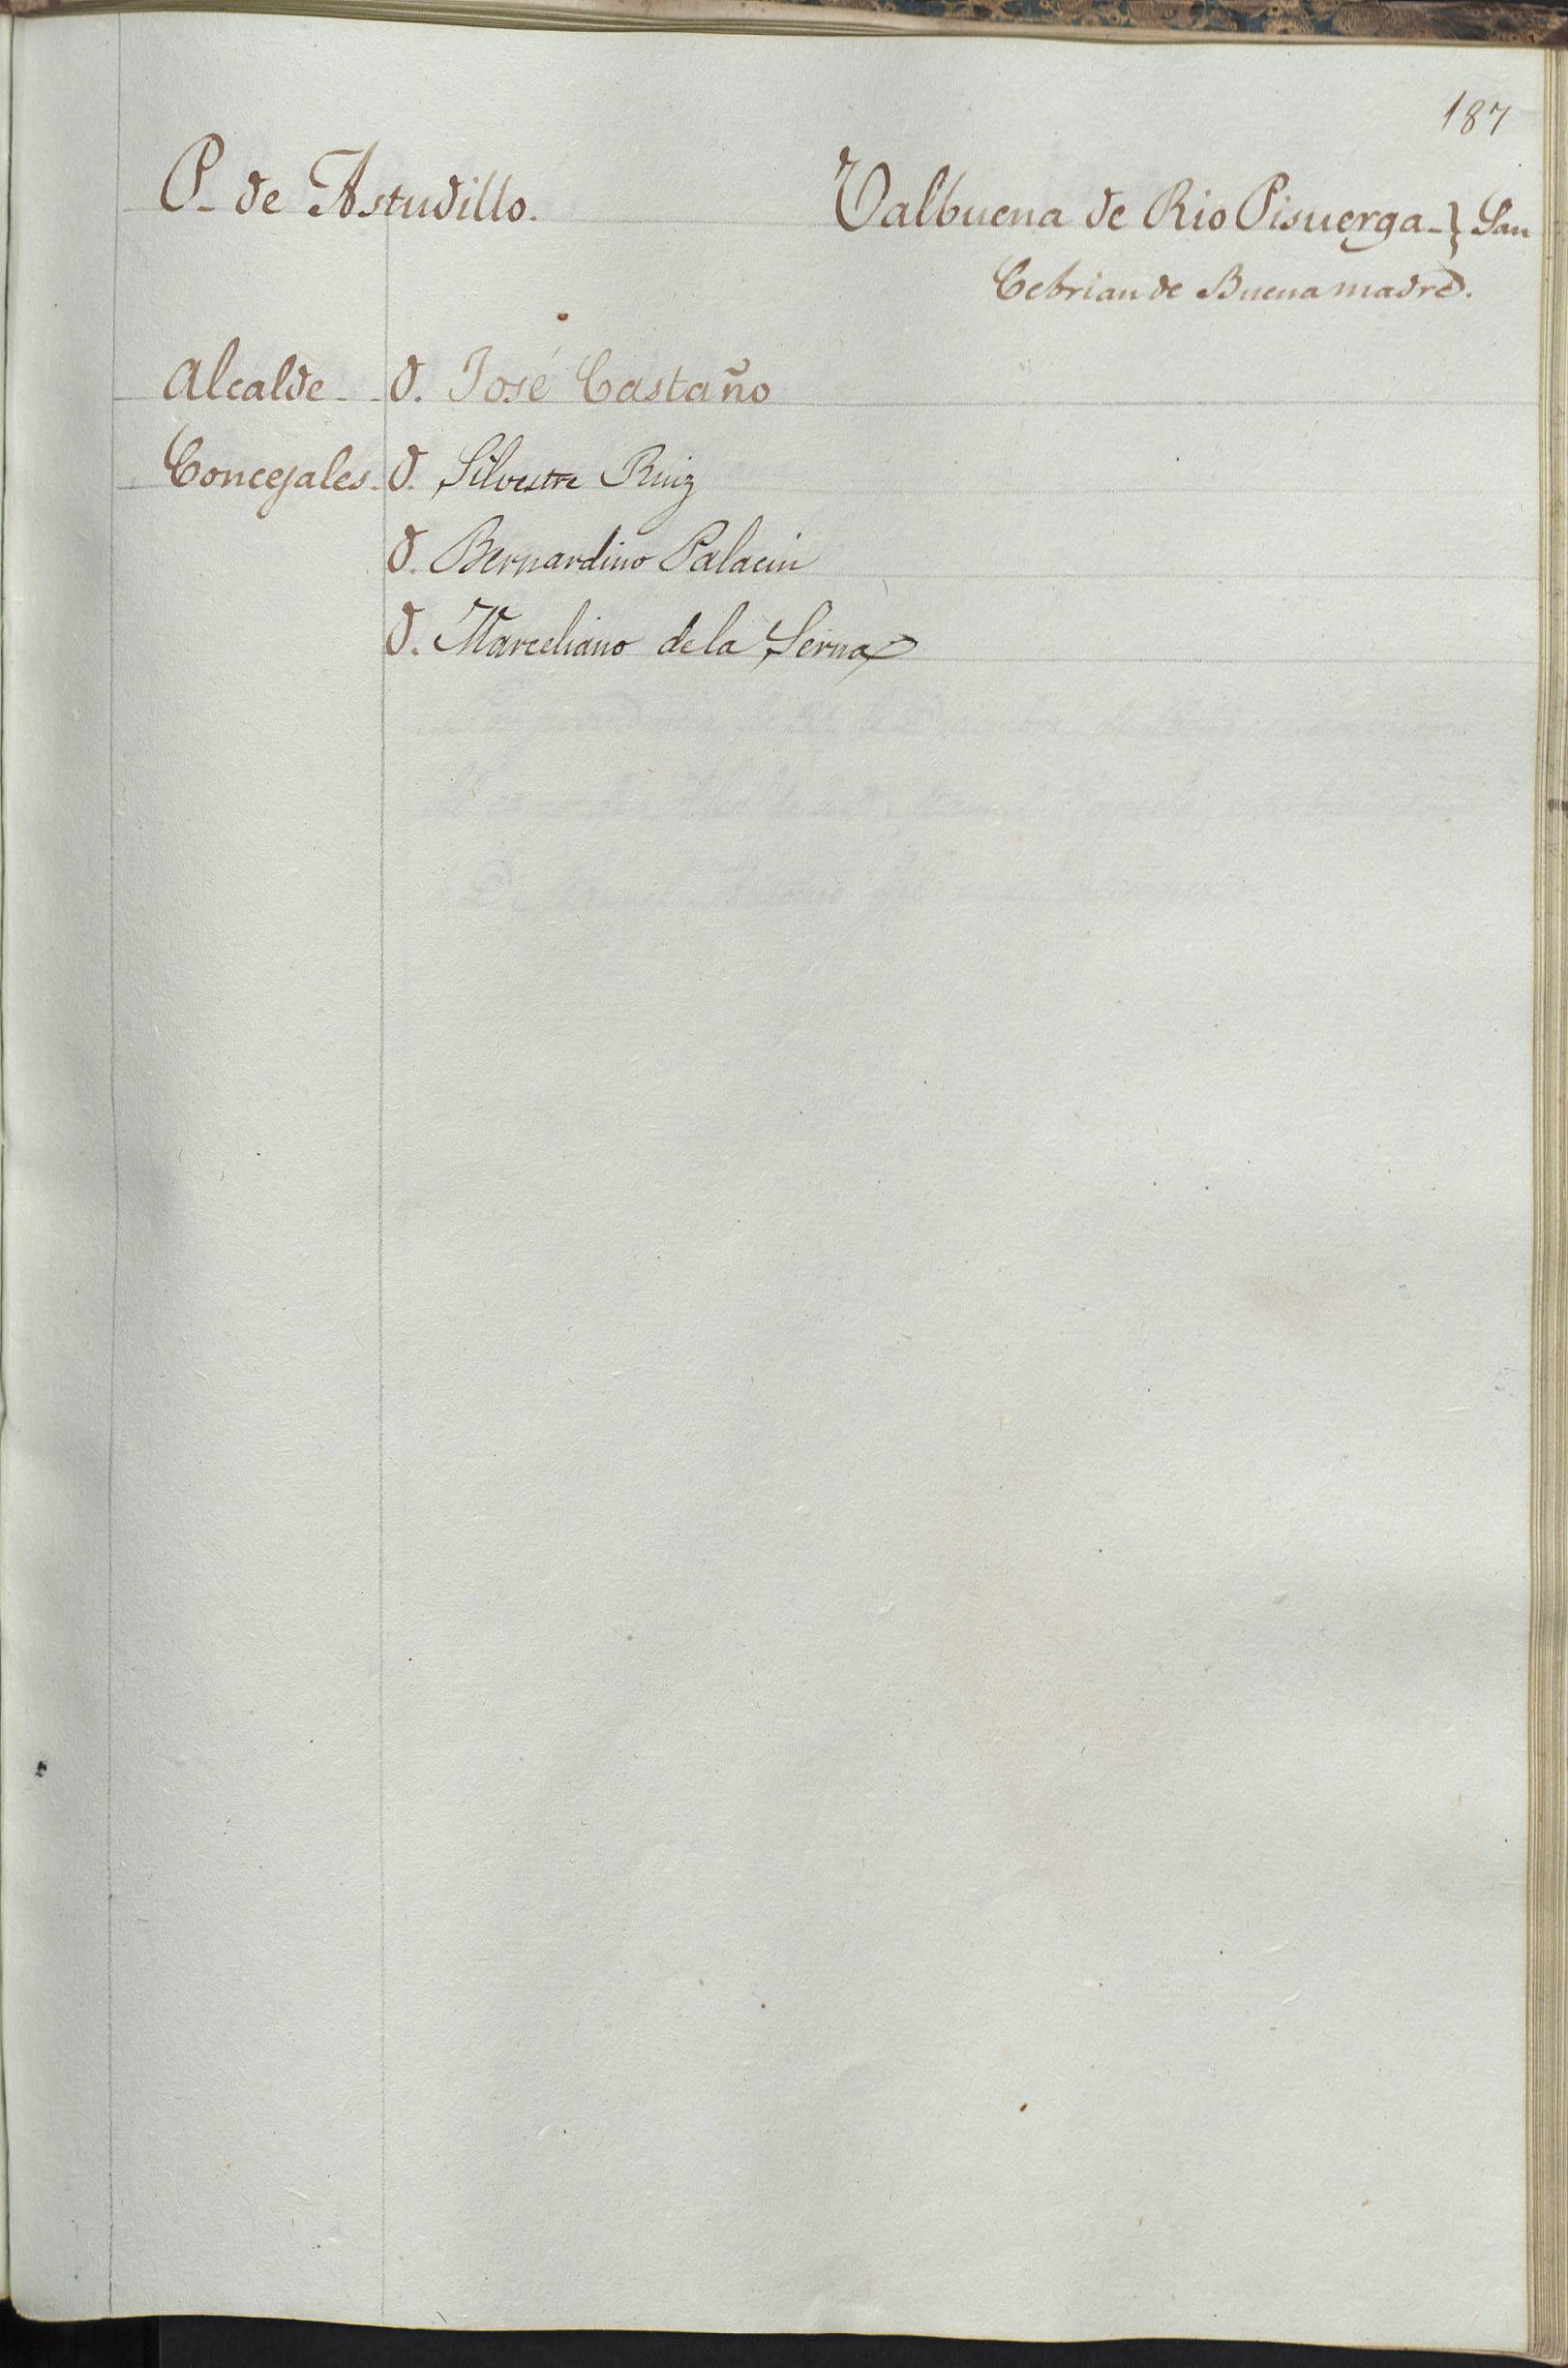 187
P. de Astudillo.
Valbuena de Rio Pisuerga - } San
Cebrian de Buena madre.
Alcalde - D. José Castaño
Concejales. D. Silvestre Ruiz
D. Bernardino Palacin
D. Marceliano de la Serna